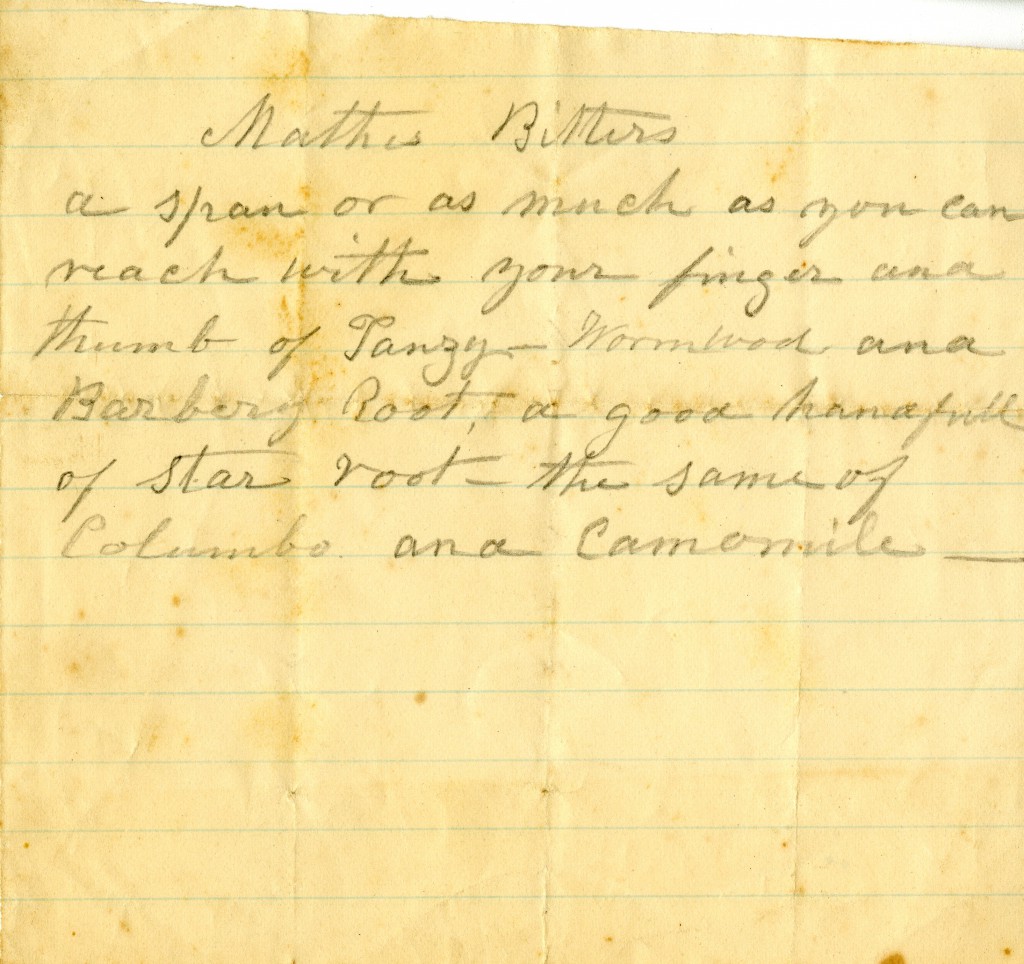 Mathis Bitters
a span or as much as you can
reach with your finger and
thumb of Tanzy - Wormwood and
Barbery Root, a good handfull
of Star root - the same of
Columbo and Camomile -